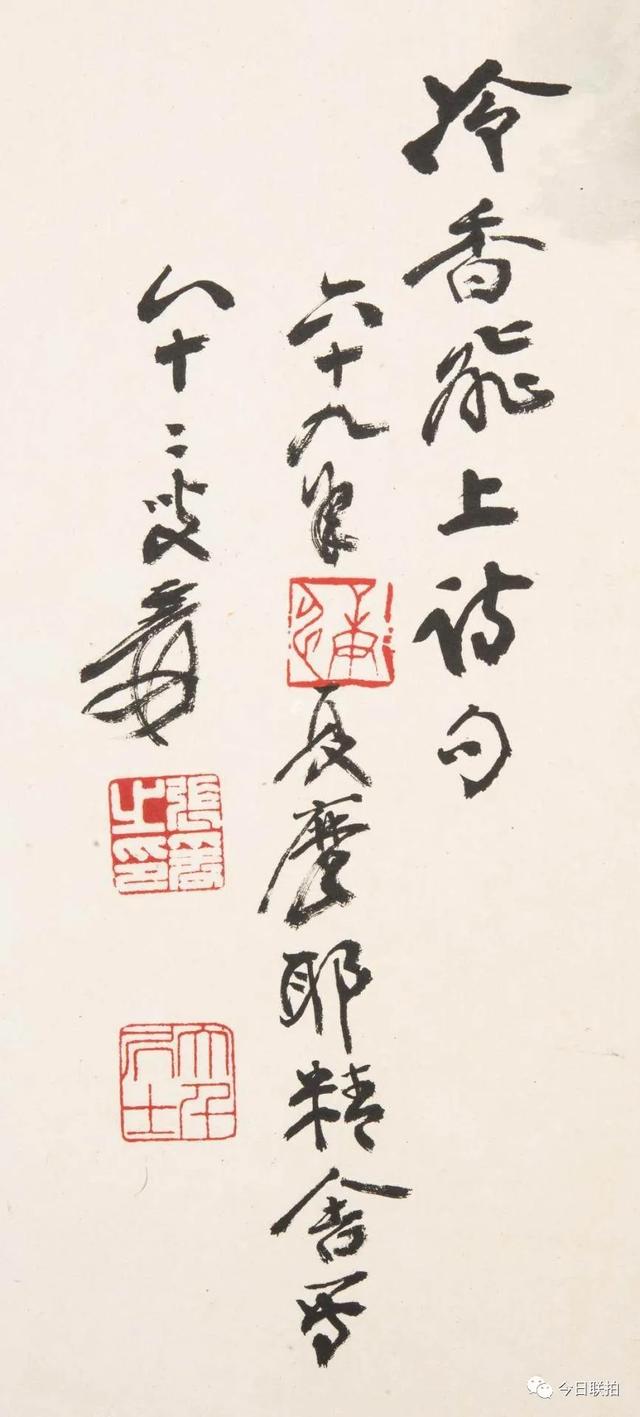 冷香飛上詩句
六十九年
庚申
夏摩耶精舍寫
八十二叟爰
張爰之印
大千居士
今日联拍